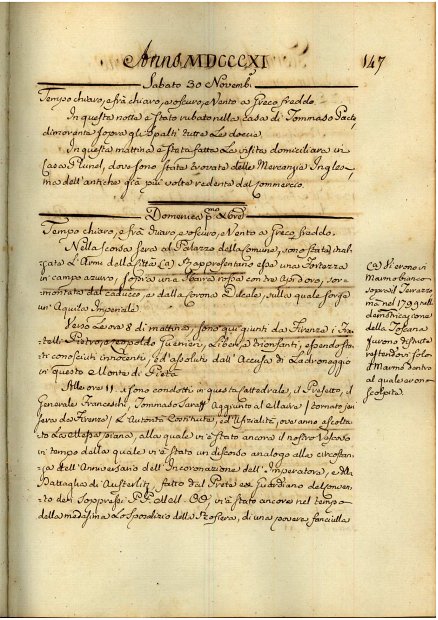 Anno MDCCCXI
147
Sabato 30 Novemb.
Tempo chiaro, e frà chiaro, e oscuro, e Vento a Greco freddo.
In questa notte è stato rubato nella casa di Tommaso
dimorante sopra gli spalti tutte le docce.
In questa mattina è stata fatta la visita domiciliare in
Casa Plunel, dove sono state trovate delle Mercanzie Ingle,,
ma dell'antiche già più volte vedute dal Commercio.
Domenica p.mo Xbre
Tempo chiaro, e frà chiaro, e oscuro, e Vento a Greco freddo.
Nella scorsa sera al Palazzo della Comune, sono state
l'Armi della Città (a) Rappresentano esse una Fortezza
in campo azurro, sopra una sbarra rossa con tre Api d'oro, sor,,
montata dal caduceo, e dalla Corona Ideale, sulla quale sorge
un'Aquila Imperiale
Verso le ore 8 di mattina, sono qui giunti da Firenze i Fra,,
telli Pietro, e Leopoldo Guerrieri, Liberi, e trionfanti, essendo stati
conosciuti innocenti, ed assoluti dall'Accusa di Ladroneggio
in questo Monte di Pietà
Alle ore 11 si sono condotti in questa Cattedrale, il Prefetto, il
Generale Franceschi, Tommaso Aggiunto al Maire / tornato jeri
sera da Firenze / L'Autorità Costituite, ed Ufizialità, ove anno ascolta,,
to la Messa piana, alla quale vi è stato ancora il nostro Vescovo
in tempo della quale vi è stato un discorso analogo alle circostan,,
ze dell'Anniversario dell'Incoronazione dell'Imperatore, e della
Battaglia di Austerlitz, fatto dal Prete ex Guardiano del conven,,
to dei Soppressi P.P. vi è stato ancora nel tempo
della medesima lo sposalizio della Rosiera, di una povera fanciulla
(a) Vi erono in
Marmo bianco
sopra il Terrazzo
ma nel 1799 nella
democratizzazione
della Toscana
furono disfatte
restandovi solo il
Marmo dentro
al quale erono
scolpite.